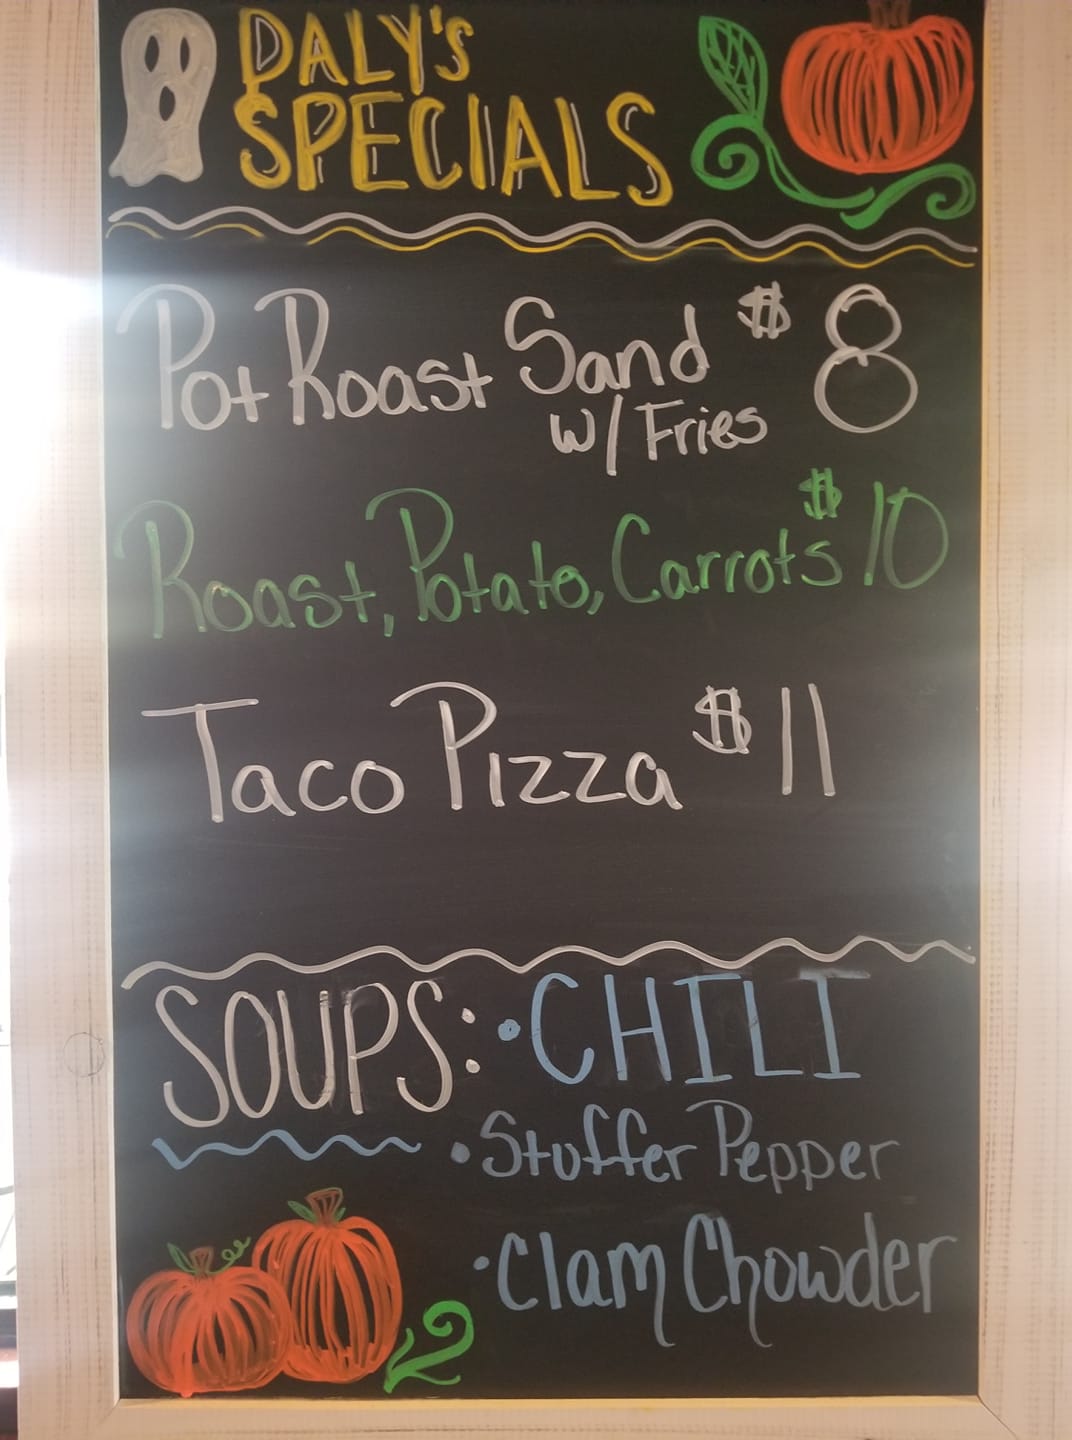 DALY'S
SPECIALS
Pot Roast Sand $8
w/ Fries
Roast, Potato, Carrots $10
Taco Pizza $11
SOUPS: • CHILI
• Stuffer Pepper
• Clam Chowder